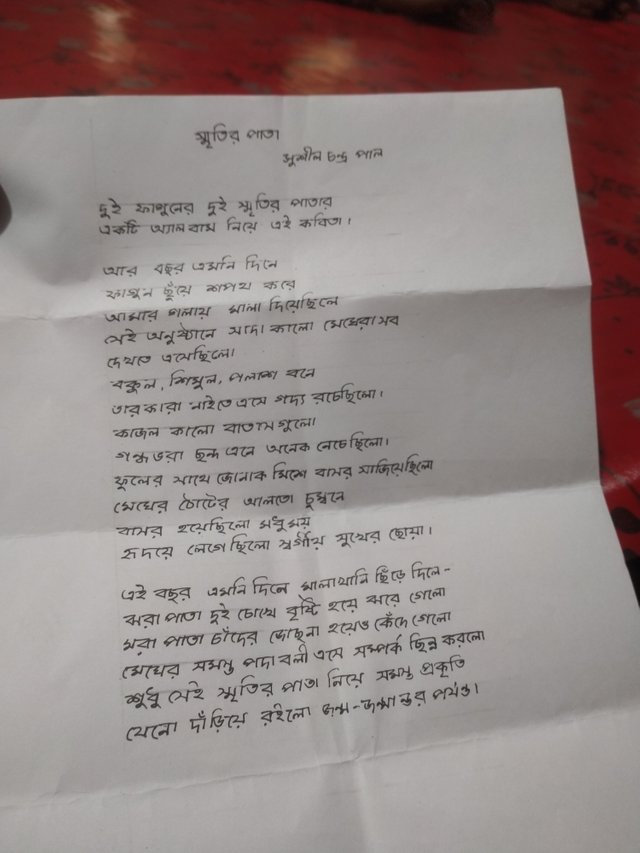 স্মৃতির পাতা
সুশীল চন্দ্র পাল
দুই ফাগুনের দুই স্মৃতির পাতার
একটি অ্যালবাম নিয়ে এই কবিতা।
আর বছর এমনি দিনে
ফাগুন ছুঁয়ে শপথ করে
আমার গলায় মালা দিয়েছিলে
সেই অনুষ্ঠানে সাদা কালো মেঘেরা সব
দেখতে এসেছিলো।
বকুল, শিমুল, পলাশ বনে
তারকারা নাইতে এসে গদ্য রচেছিলো।
কাজল কালো বাতাস গুলো
গন্ধভরা ছন্দ এনে অনেক নেচেছিলো।
ফুলের সাথে জোনাক মিশে বাসর সাজিয়েছিলো
মেঘের ঠোটের আলতো চুম্বনে
বাসর হয়েছিলো মধুময়
হৃদয়ে লেগেছিলো স্বর্গীয় সুখের ছোয়া।
এই বছর এমনি দিনে মালাখানি ছিঁড়ে দিলে-
ঝরা পাতা দুই চোখে বৃষ্টি হয়ে ঝরে গেলো
মরা পাতা চাঁদের জোছনা হয়েও কেঁদে গেলো
মেঘের সমস্ত পদাবলী এসে সম্পর্ক ছিন্ন করলো
শুধু সেই স্মৃতির পাতা নিয়ে সমস্ত প্রকৃতি
যেনো দাঁড়িয়ে রইলো জন্ম-জন্মান্তর পর্যন্ত।